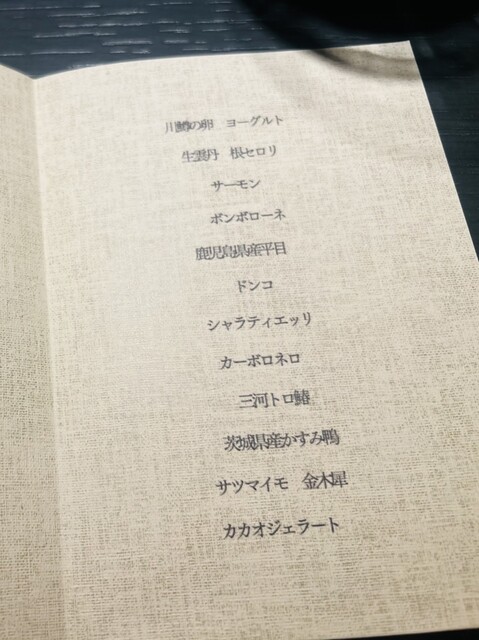 川鱒の卵　ヨーグルト
生雲丹　根セロリ
サーモン
ボンボローネ
鹿児島県産平目
ドンコ
シャラティエッリ
カーボロネロ
三河トロ鰆
茨城県産かすみ鴨
サツマイモ　金木犀
カカオジェラート